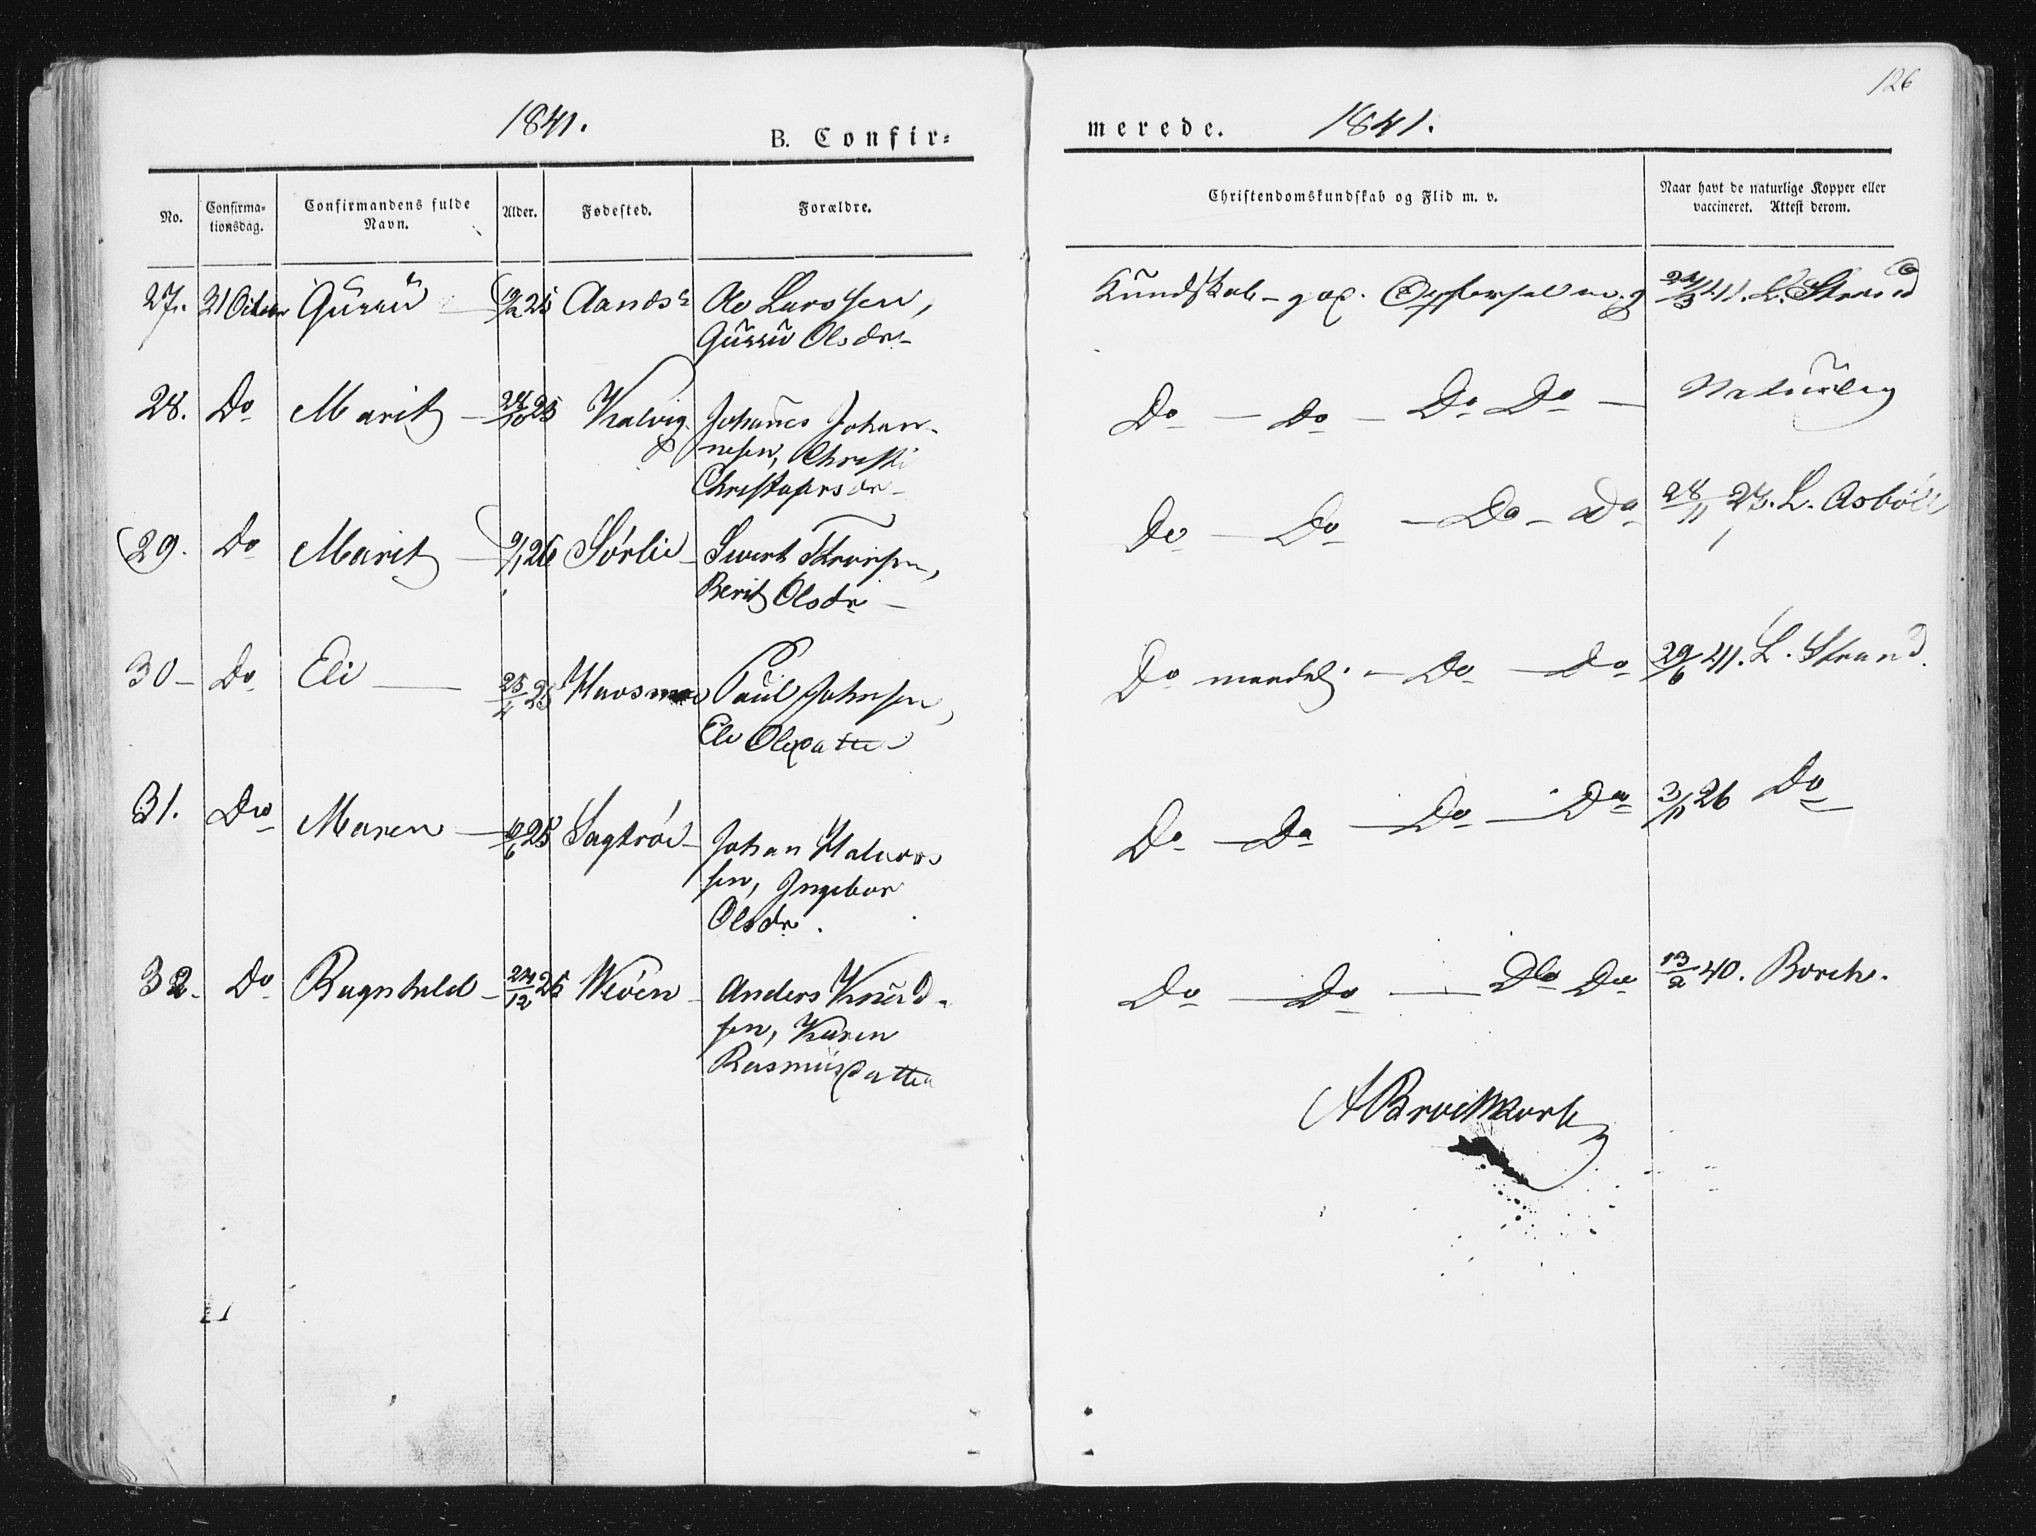 126
1841.
B. Confir=
merede.
1841.
No.
Confirma-
tionsdag.
Confirmandens fulde
Navn.
Alder.
Fødested.
Forældre.
Christendomskundskab og Flid m. v.
Naar havt de naturlige Kopper eller
vaccineret. Attest derom.
27. 31 Octbr Gurru 25 Aands Ole Larssen,
Gurru Olsdr
Kundskab - god. Opførsel m. g 41. L. Strand
28. Do Marit 28/10 25 Kalvig Johanes Johan-
nesen, Christi
Christophersdr
Do - Do - Do Do - Naturlig
29. Do Marit 9/1 26 Sørlie Sivert
Berit Olsdr
Do - Do - Do - Do 28/11 L. Asbøll
30 - Do Eli 25/4 25 Paul Johnsen,
Eli Olsdatter
Do maadelig - Do - Do 29/6 41. L. Strand.
31. Do Maren 25 Sagtrøe Johan Halvors
sen, Ingebor
Olsdr.
Do - Do - Do - Do 3/11 26 Do
32. Do Ragnhild - 24/12 25 Anders Knud-
sen, Karen
Rasmusdatter
Do - Do - Do Do 13/2 40. Borch.